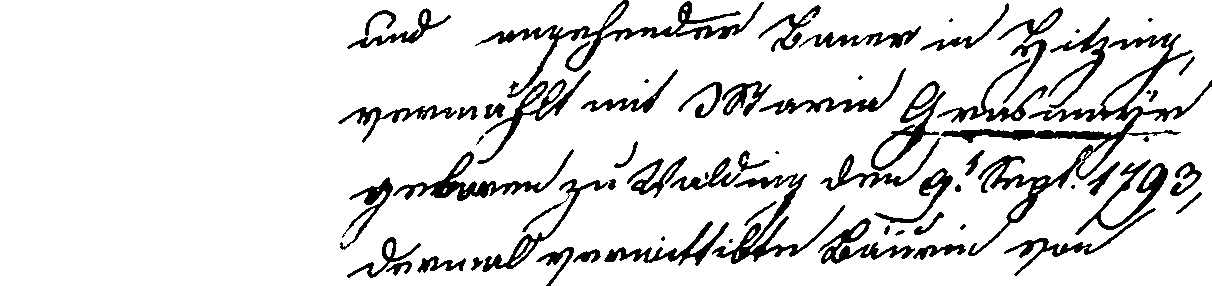 und angehender Bauer in Hitzing,
vermählt mit Maria Grasmaÿr
geboren zu Walding den 9.t Sept. 1793,
dermal verwittibte Bäurin von